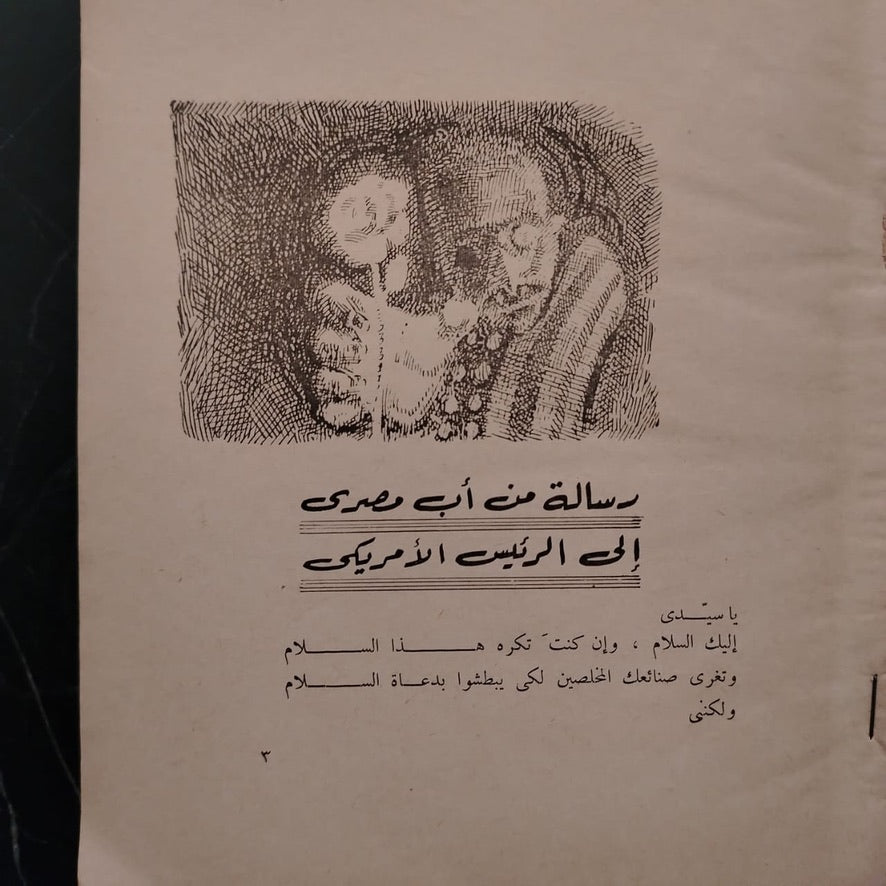 رسالة من أب مصرى
إلى الرئيس الأمريكى
يا سيّدى
إليك السلام ، وإن كنتَ تكره هذا السلام
وتغرى صنائعك المخلصين لكى يبطشوا بدعاة السلام
ولكننى
٣